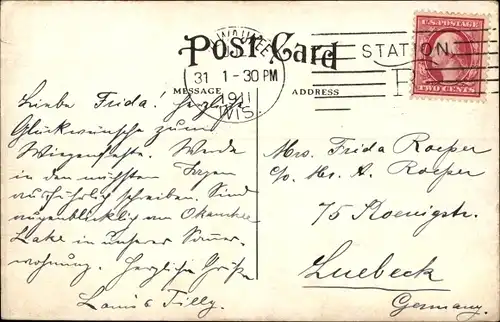 MILWAUKEE
31 1-30 PM
1911
WIS.
STATION
U.S. POSTAGE
TWO CENTS
Post Card
MESSAGE
ADDRESS
Liebe Frida! Herzliche
Glückwünsche zum
Wiegenfeste. Werde
in den nächsten Tagen
ausführlich schreiben. Sind
augenblicklich am Okauchee
Lake in unserer Sommer-
wohnung. Herzliche Grüße
Louis & Tilly.
Mrs. Frida Roeper
c/o Mr. A. Roeper
75 Koenigstr.
Luebeck
Germany.